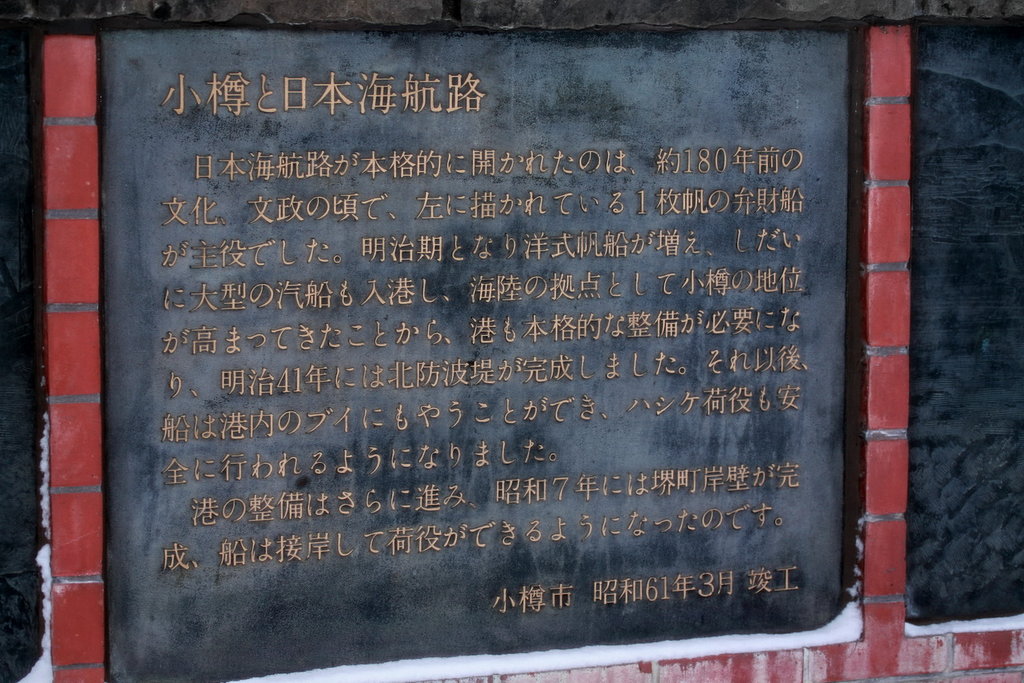 小樽と日本海航路
日本海航路が本格的に開かれたのは、約180年前の
文化、文政の頃で、左に描かれている1枚帆の弁財船
が主役でした。明治期となり洋式帆船が増え、しだい
に大型の汽船も入港し、海陸の拠点として小樽の地位
が高まってきたことから、港も本格的な整備が必要にな
り、明治41年には北防波堤が完成しました。それ以後、
船は港内のブイにもやうことができ、ハシケ荷役も安
全に行われるようになりました。
港の整備はさらに進み、昭和7年には堺町岸壁が完
成、船は接岸して荷役ができるようになったのです。
小樽市 昭和61年3月 竣工